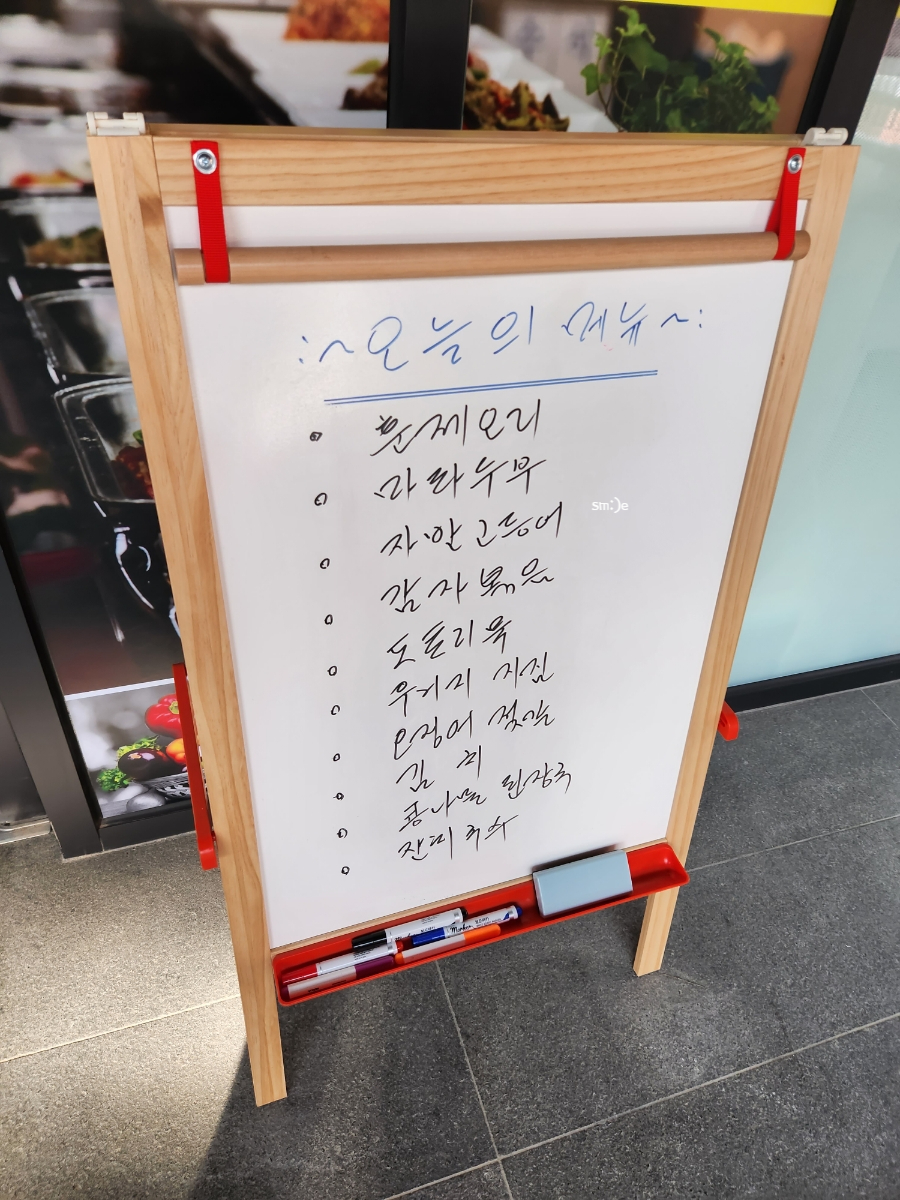 :~오늘의 메뉴~:
훈제오리
마라두부
자반고등어
감자볶음
도토리묵
우거지 지짐
오징어 젓갈
김치
콩나물 된장국
잔피
sm:)e